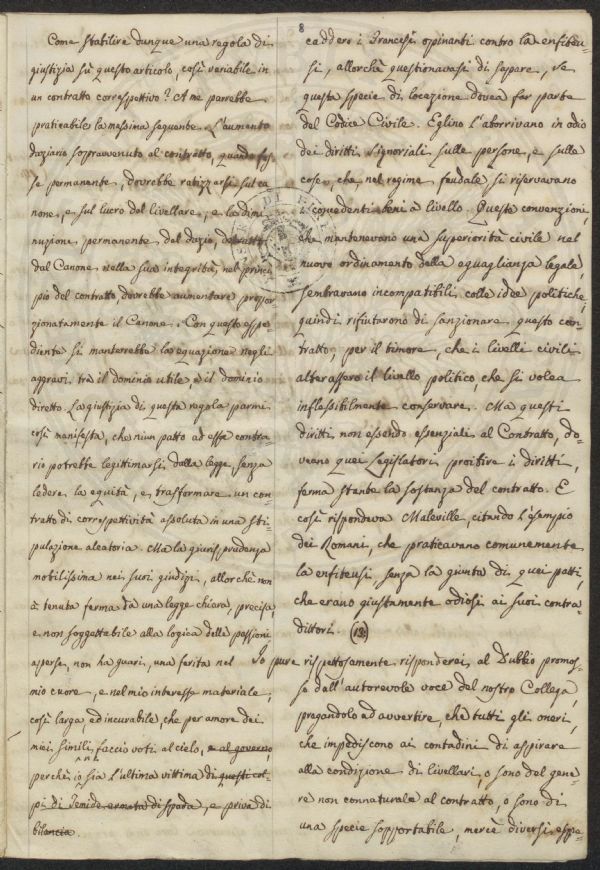 8
Come stabilire dunque una regola di
giustizia sù questo articolo, così variabile in
un contratto correspettivo? A me parrebbe
praticabile la massima seguente. L'aumento
daziario sopravvenuto al contratto, quando fos=
se permanente, dovrebbe ratizzarsi sul ca
none, e sul lucro del livellare, e la dimi
nuzione permanente del dazio, detratto
dal Canone nella sua integrità, nel princi=
pio del contratto dovrebbe aumentare propor
zionatamente il Canone. Con questo espe=
diente si manterrebbe la equazione negli
aggravi, trà il dominio utile, e il dominio
diretto. La giustizia di questa regola parmi
così manifesta, che niun patto ad essa contra
rio potrebbe legittimarsi dalla legge, senza
ledere la equità, e trasformare un con=
tratto di correspettività assoluta in una sti=
pulazione aleatoria. Ma la giurisprudenza
mobilissima nei suoi giudizi, allorchè non
è tenuta ferma da una legge chiara, precisa,
e non soggettabile alla logica delle passioni,
aperse, non ha guari, una ferita nel
mio cuore, e nel mio interesse materiale,
così larga, ed incurabile, che per amore dei
miei simili faccio voti al cielo, e al governo,
perchè io sia l'ultima vittima di questi col=
pi di Temide armata di spada, e priva di
bilancia.
caddero i Francesi opinanti contro la enfiteu=
si, allorchè questionavasi di sapere, se
questa specie di locazione dovea far parte
del Codice Civile. Eglino l'aborrivano in odio
dei diritti signoriali sulle persone, e sulle
cose, che nel regime feudale si riservavano
i concedenti beni a livello. Queste convenzioni,
che mantenevano una superiorità civile nel
nuovo ordinamento della eguaglianza legale,
sembravano incompatibili colle idee politiche,
quindi rifiutarono di sanzionare questo con=
tratto, per il timore, che i livelli civili
alterassero il livello politico, che si volea
inflessibilmente conservare. Ma questi
diritti non essendo essenziali al Contratto, do=
veano quei Legislatori proibire i diritti,
ferma stante la sostanza del contratto. E
così rispondeva Maleville, citando l'esempio
dei Romani, che praticavano comunemente
la enfiteusi, senza la giunta di quei patti,
che erano giustamente odiosi ai suoi contra=
dittori. (13)
Io pure rispettosamente risponderei al Dubbio promos=
so dall'autorevole voce del nostro Collega,
pregandolo ad avvertire, che tutti gli oneri,
che impediscono ai contadini di aspirare
alla condizione di livellari, o sono del gene=
re non connaturale al contratto, o sono di
una specie sopportabile, mercè diversi espe=